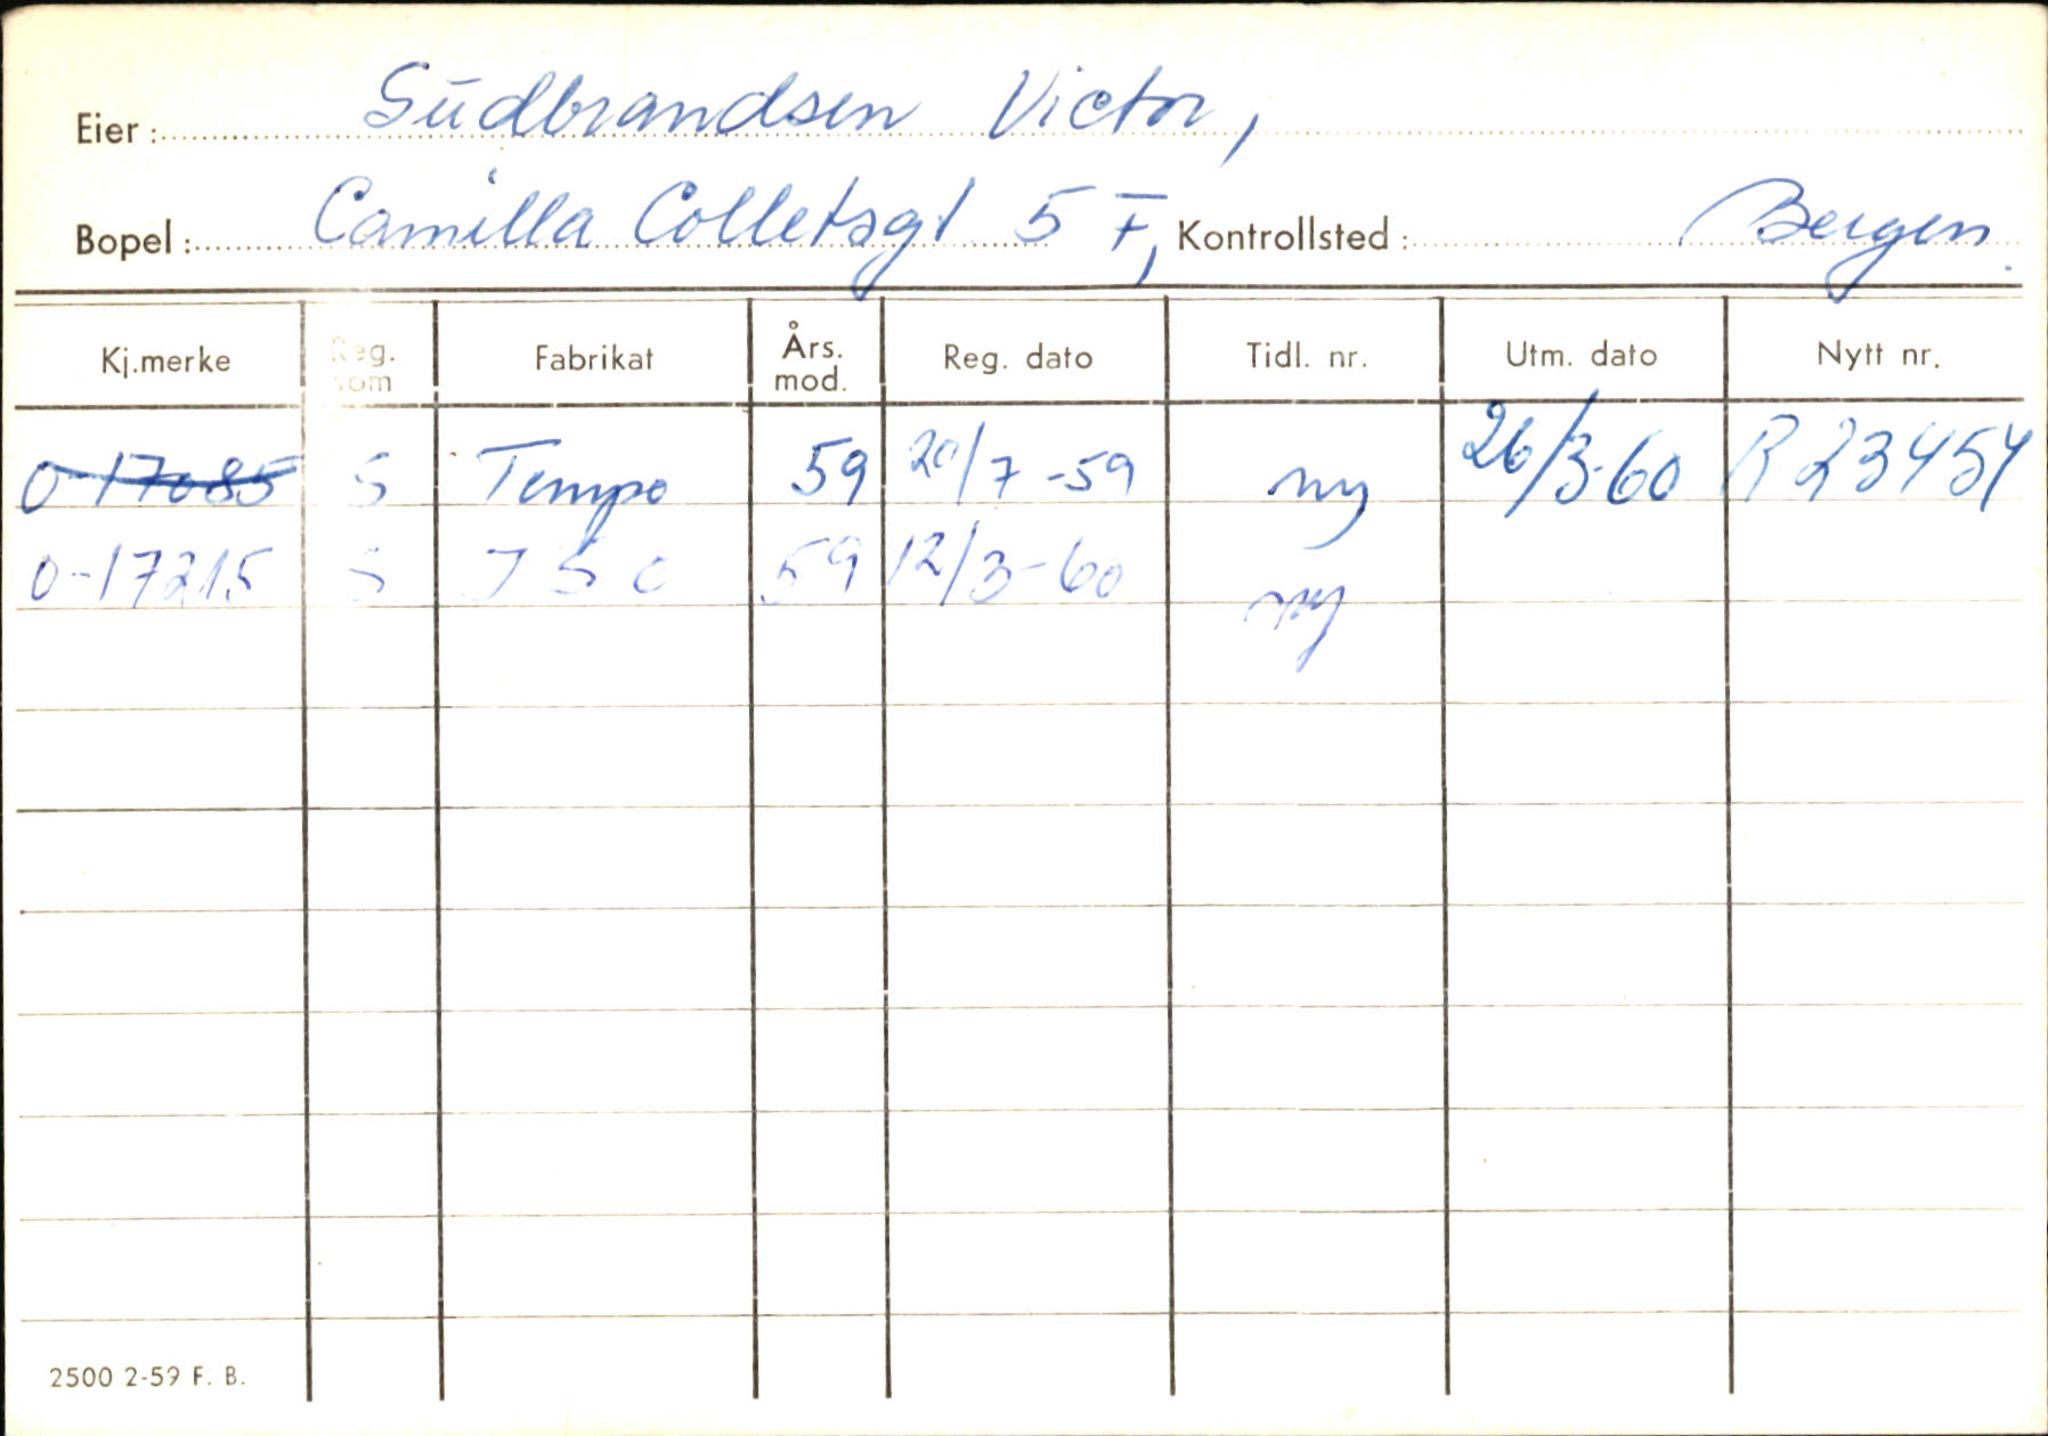 Eier: Gudbrandsen Victor,
Bopel: Camilla Colletsgt 5 I, Kontrollsted: Bergen.
Kj.merke Reg. som Fabrikat Års. mod. Reg. dato Tidl. nr. Utm. dato Nytt nr.
O-17085 S Tempo 59 20/7-59 ny 26/3-60 R 23454
O-17215 S 59 12/3-60 ny
2500 2-59 F. B.